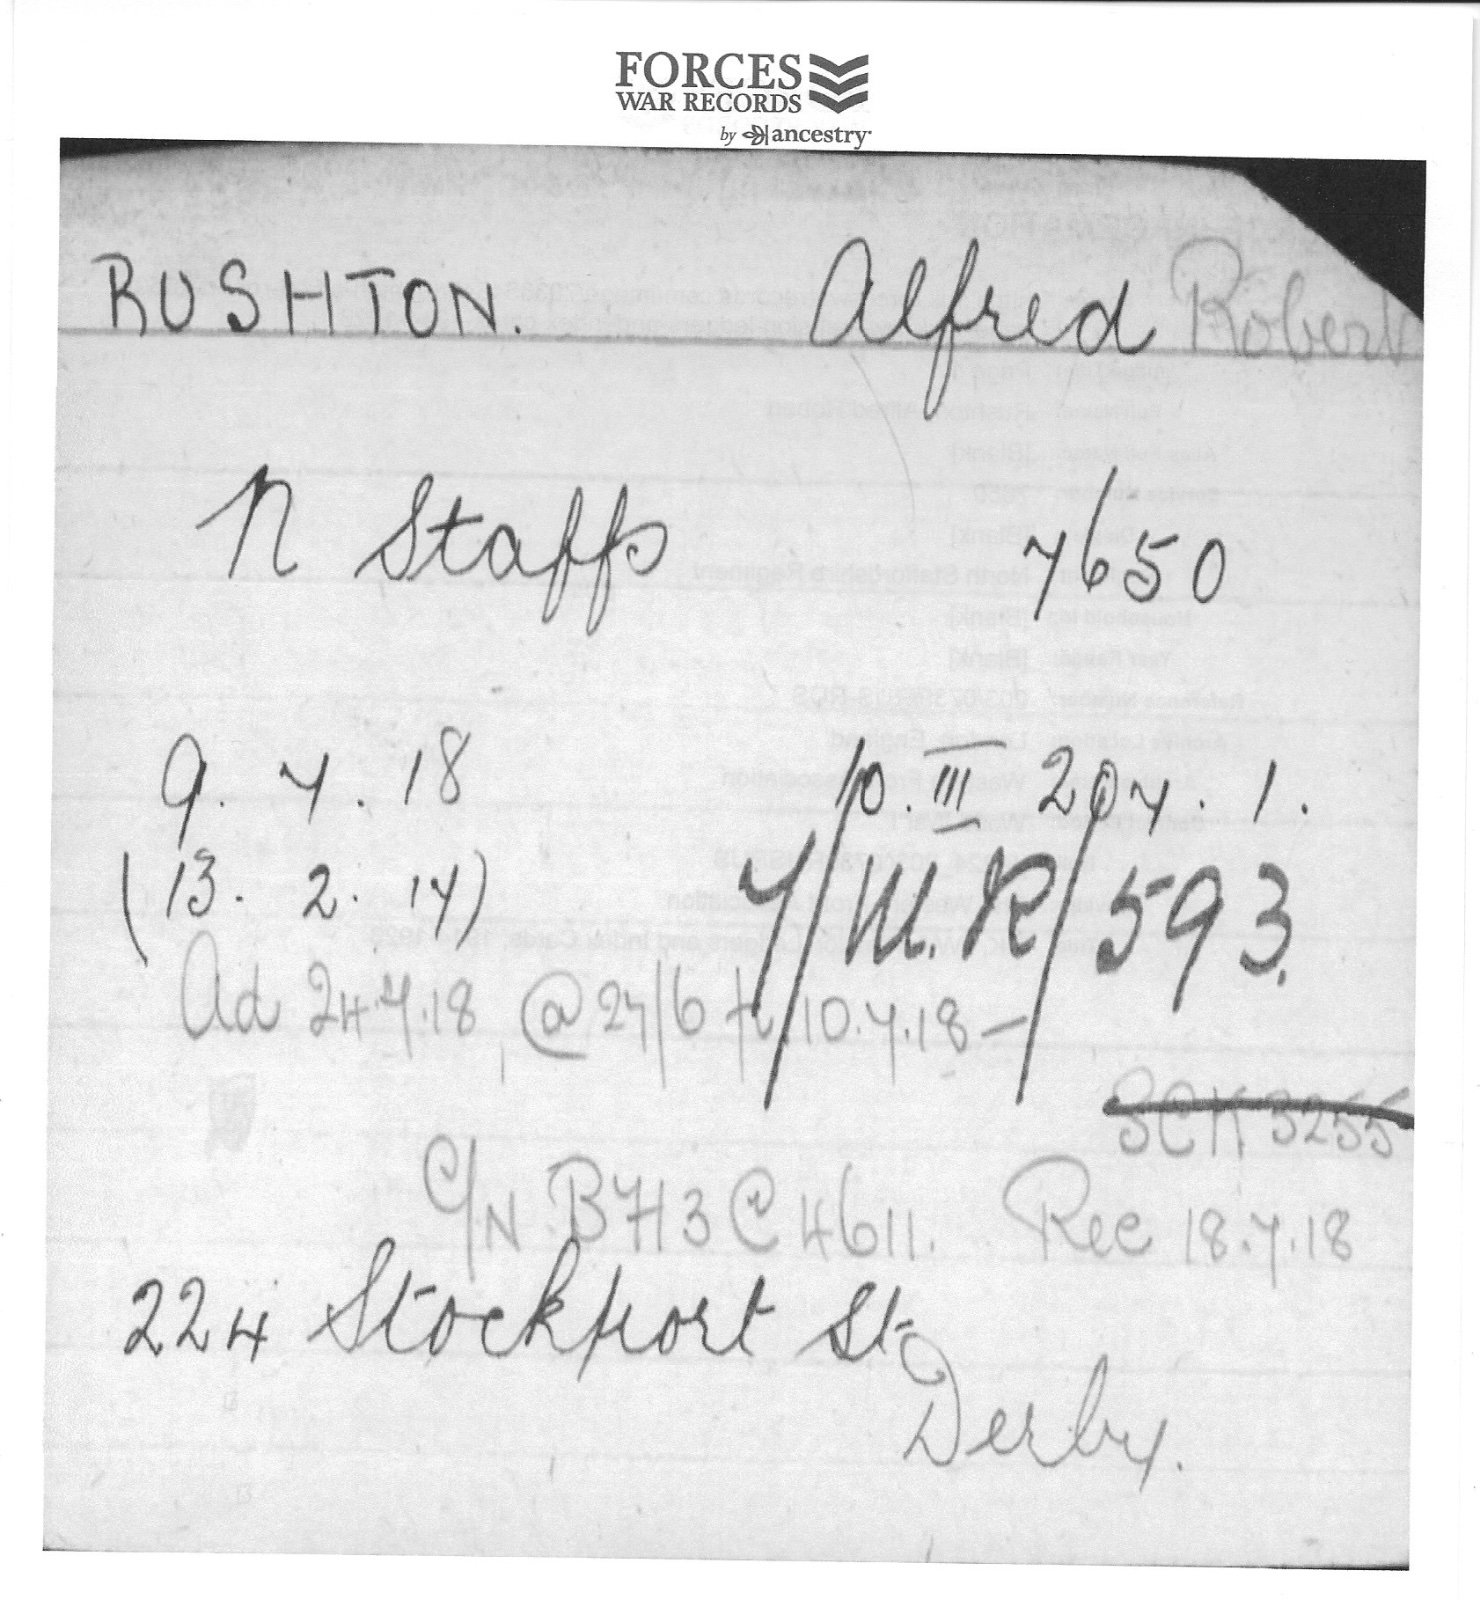 FORCES
WAR RECORDS
by ancestry
RUSHTON. Alfred Robert
N Staffs 7650
9. 7. 18 10. III 204. 1.
(13. 2. 17) 7/M.R/593.
Ad 24.7.18 @ 27/6 fr 10.7.18 —
SCK 3255
C/N B713 C 4611. Rec 18.7.18
224 Stockport St.
Derby.